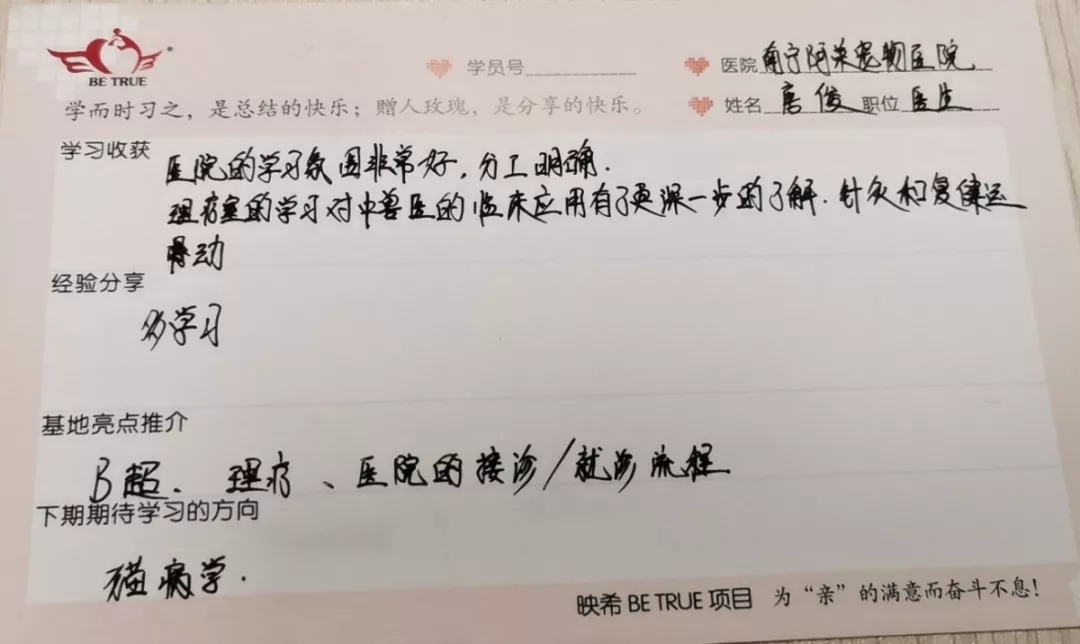 BE TRUE
学员号
医院 南宁阿荣宠物医院
学而时习之,是总结的快乐;赠人玫瑰,是分享的快乐。
姓名 唐俊 职位 医生
学习收获
医院的学习氛围非常好,分工明确.
理疗室的学习对中兽医的临床应用有了更深一步的了解.针灸和复健运
动
经验分享
多学习
基地亮点推介
B超.理疗、医院的接诊/就诊流程
下期期待学习的方向
猫病学.
映希 BE TRUE 项目 为“亲”的满意而奋斗不息!